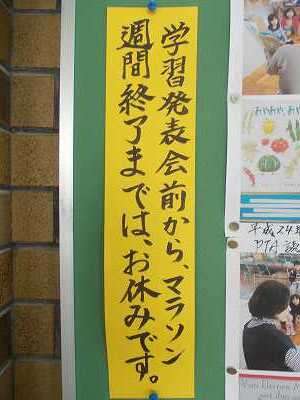 学習発表会前から、マラソン
週間終了までは、お休みです。
おやおや、
平成24年
PTA